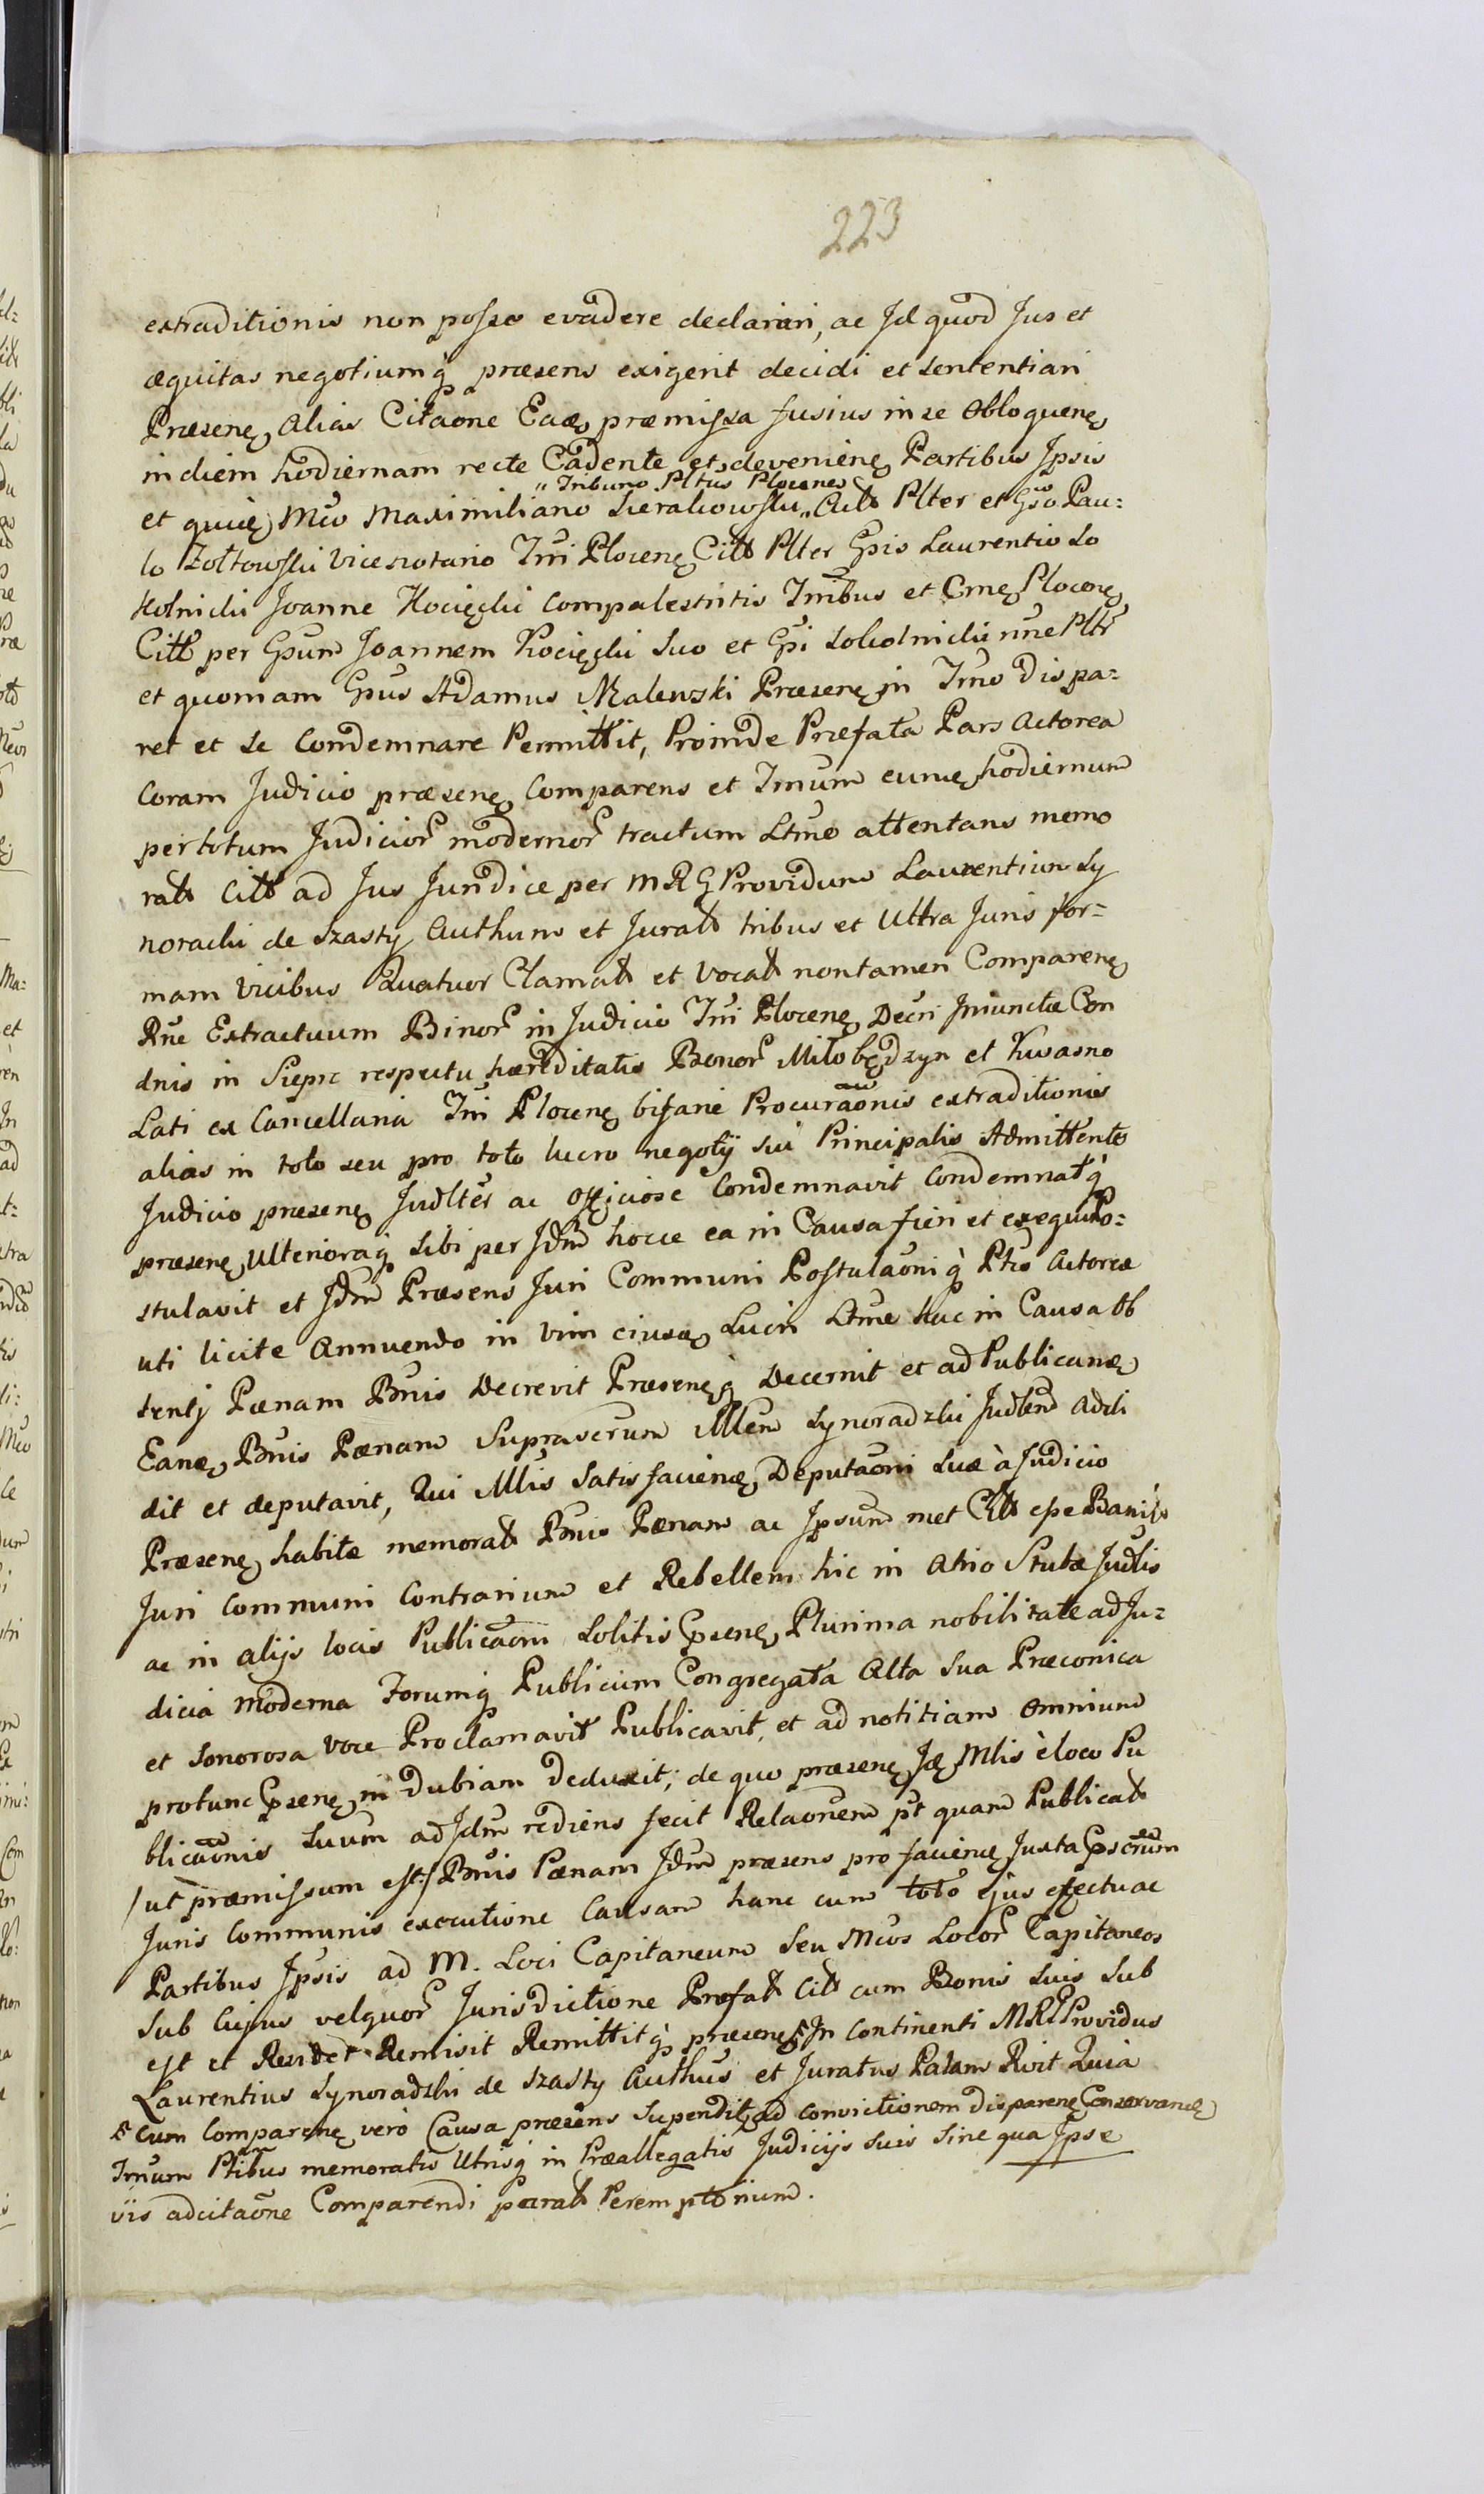 223
extraditionis non posse evadere declarari, ac Jd quod Jus et
æquitas negotiumq̃ præsens exigerit decidi et sententiari
Præsenę alias Citãone Eadę præmissa fusius in se obloquenę
in diem hodiernam recte Cadente et devenienę Partibus Jpsis
„ Tribuno Pltus Plocenę
et quidę Mco Maximiliano Sierakowski „ Actt Plter et Gso Pau:
lo Żołtowski Vicenotario Trri Plocenę Citt Plter Gsis Laurentio So
kolnicki Joanne Kocięcki compalestritis Tribus et Cmę Plocenę
Citt per Gsum Joannem Kocięcki suo et Gsi Sokolnicki nne Pltr
et quoniam Gsus Adamus Malewski Præsenę in Tmo dispa:
ret et se Condemnare Permittit, Proinde Præfata Pars Actorea
Coram Judicio præsenę Comparens et Tmum eumę hodiernum
per totum Judicior modernor tractum Ltme attentans memo
ratt Citt ad Jus Juridice per MRG Providum Laurentium Sy
noracki de Szasty Authum et Juratt tribus et Ultra Juris for=
mam Vicibus Quatuor Clamatt et Vocatt non tamen Comparenę
Rne Extractuum Binor in Judicio Trri Plocenę Decri Jniunctæ Con
dnis in Sieprc respectu hæreditatis Bonor Miłobędzyn et Kwasno
Lati ex Cancellaria Trri Plocenę bifarie Procurãonis extraditionis
alias in toto seu pro toto lucro negotij sui Principalis Admittente
Judicio præsenę Judlter ac Officiose Condemnavit Condemnatq̃
præsenę Ulterioraq̃ sibi per Jdm hocce ea in Causa fieri et exequi Po=
stulavit et Jdm Præsens Juri Communi Postulãoniq̃ Ptis Actoreæ
uti licite Annuendo in Vim eiusdę Lucri Ltme hac in Causa ob
tenti Pænam Bnis Decrevit Præsenęq̃ Decernit et ad Publicandę
Eandę Bnis Pænam Suprascrum Mlem Synoradzki Judlem Addi
dit et deputavit, Qui Mlis Satisfaciendę Deputãoni Suæ à Judicio
Præsenę habitæ memoratt Bnis Pænam ac Jpsum met Citt esse Banijs
Juri Communi Contrarium et Rebellem hic in Atrio Stubæ Judlis
ac in alijs locis Publicãom Solitis Gpsenę Plurima nobilitate ad Ju=
dicia Moderna Forumq̃ Publicum Congregata Alta Sua Præconica
et Sonorosa Voce Proclamavit Publicavit, et ad notitiam Omnium
protunc Gpsenę in dubiam Deduxit; de quo præsenę Jdę Mlis è loco Pu
blicãonis Suum ad Jdm rediens fecit Relãonem pt quam Publicatt
/ut præmissum est/ Bnis Pænam Jdm præsens pro faciendę Juxta Gpscrum
Juris Communis executione Causam hanc cum toto ejus effectu ac
Partibus Jpsis ad M. Loci Capitaneum seu Mcos Locor Capitaneos
sub Cujus vel quor Jurisdictione Præfatt Citt cum Bonis Suis Sub
est et Residet Remisit Remittitq̃ præsenę In Continenti MRG Providus
Laurentius Synoradzki de Szasty Authus et Juratus Palam Rvit Quia
Cum Comparenę verò Causa præsens Supenditę ad convictionem disparenę Conservandę
Tmum Ptibus memoratis Utrisq̃ in Præallegatis Judicijs Suis Sine qua Jpse
iis adcitãone Comparendi paratt Peremptorium.